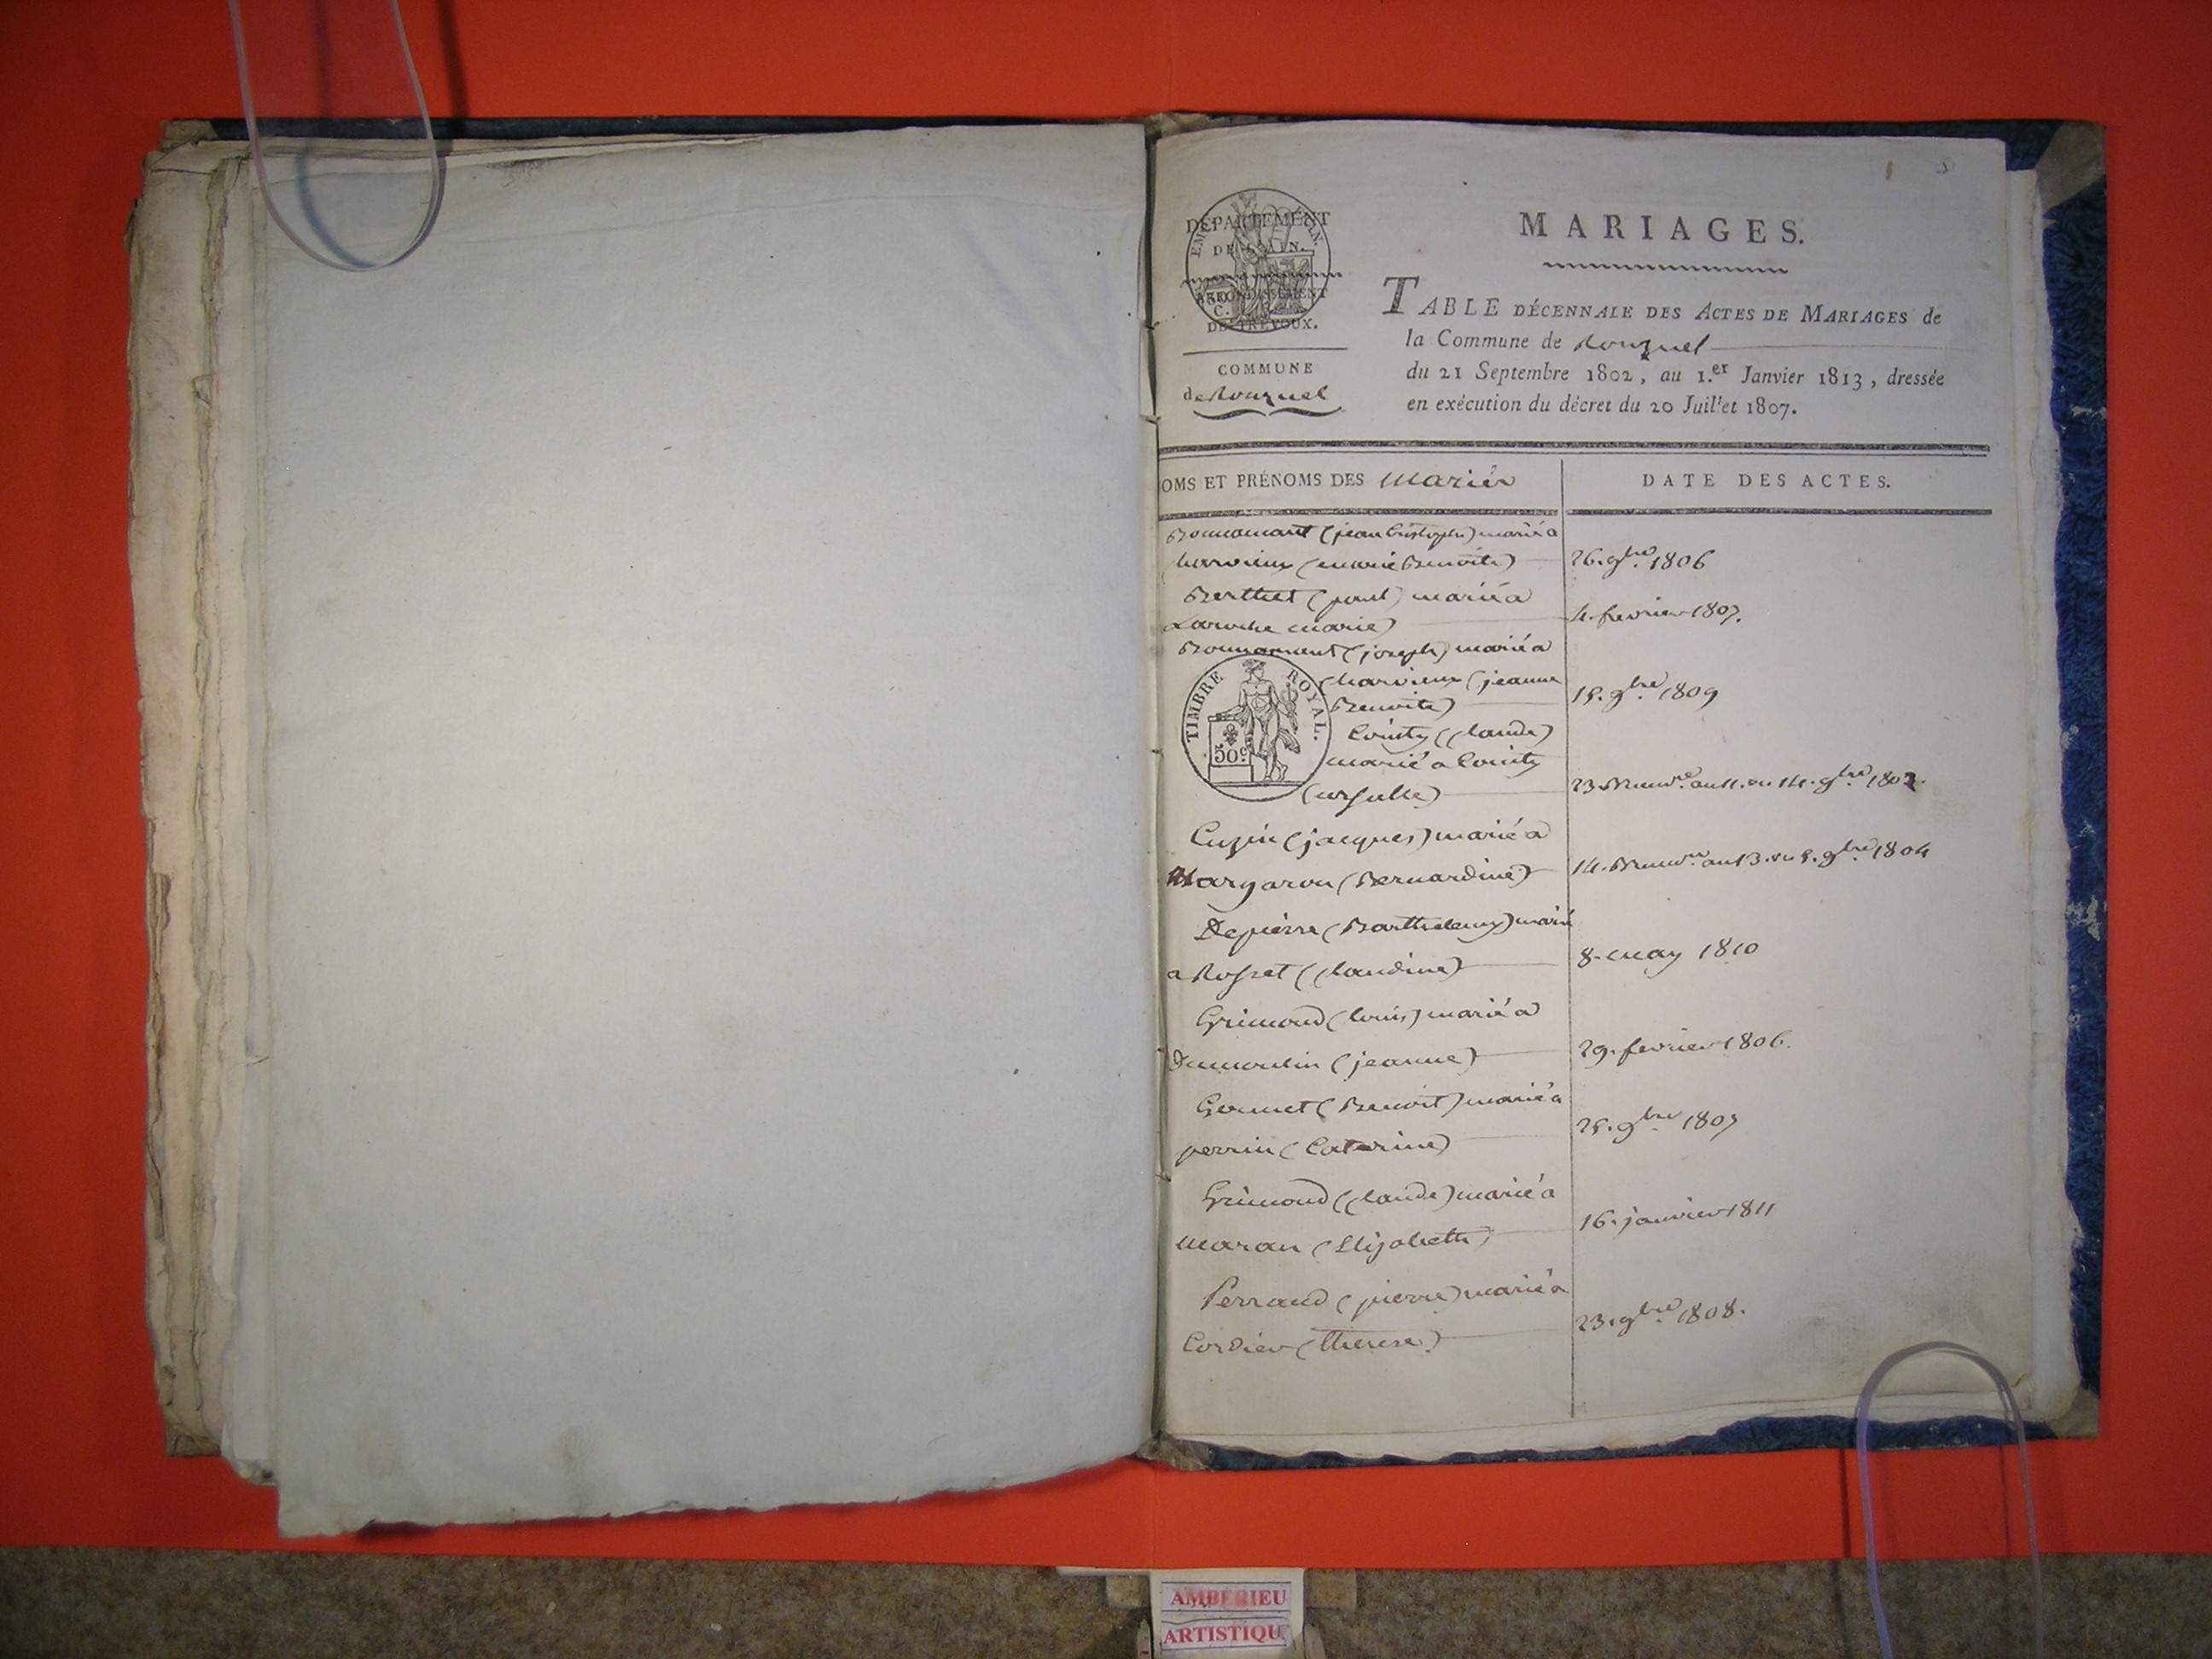 DÉPARTEMENT
DE L'AIN.
ARRONDISSEMENT
DE TRÉVOUX.
COMMUNE
de Ronzuel
MARIAGES.
TABLE DÉCENNALE DES ACTES DE MARIAGES de
la Commune de Ronzuel
du 21 Septembre 1802, au 1.er Janvier 1813, dressée
en exécution du décret du 20 Juillet 1807.
OMS ET PRÉNOMS DES mariés
DATE DES ACTES.
Bonnamant (jean Cristophe) marié a
Charvieux (marie Benoite)
26. 9bre. 1806
Berthet (paul) marié a
Laroche marie)
4. fevrier 1807.
Bonnamant (joseph) marié a
Charvieux (jeanne
Benoite)
15. 9bre. 1809
TIMBRE ROYAL.
50c
Cointy (Claude)
marié a Cointy
(ursulle)
23. Brumre. an 11. ou 14. 9bre. 1802.
Cuzin (jacques) marié a
Margaron (Bernardine)
14. Brumre. an 13. ou 5. 9bre. 1804
Depierre (Barthelemy) marié
a Rosset (Claudine)
8. may 1810
Grimoud (louis) marié a
Dumoulin (jeanne)
29. fevrier 1806.
Gormet (Benoit) marié a
perrin (Caterine)
25. 9bre. 1807
Grimoud (Claude) marié a
maran (Elizabeth)
16. janvier 1811
Perraud (pierre) marié a
Cordier (therese)
23. 9bre. 1808.
AMBERIEU
ARTISTIQU